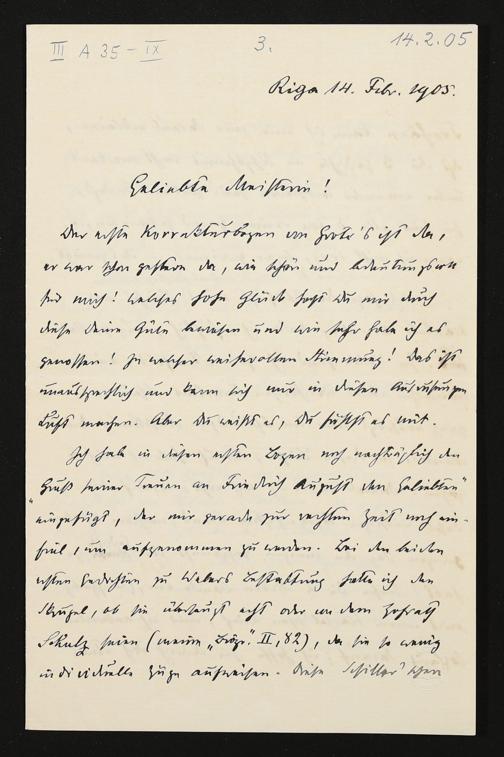 III A 35 – IX
3.
14.2.05
Riga 14. Febr. 1905.
Geliebte Meisterin!
Der erste Korrekturbogen von Grote's ist da,
er war schon gestern da, wie schön und bedeutungsvoll
für mich! Welches hohe Glück hast Du mir durch
diese Deine Güte bewiesen und wie sehr habe ich es
genossen! In welcher weihevollen Stimmung! Das ist
unaussprechlich und kann sich nur in diesen Ausrufungen
Luft machen. Aber Du weißt es, Du fühlst es mit.
Ich habe in diesen ersten Bogen noch nachträglich den
Gruß seiner Treuen an Friedrich August den Geliebten"
"eingefügt, der mir gerade zur rechten Zeit noch ein-
fiel, um aufgenommen zu werden. Bei den beiden
ersten Gedichten zu Webers Bestattung hatte ich den
Skrupel, ob sie überhaupt echt oder von dem Hofrath
Schulz seien (meine „Biogr." II, 82), da sie so wenig
individuelle Züge aufweisen. Diese Schiller'schen